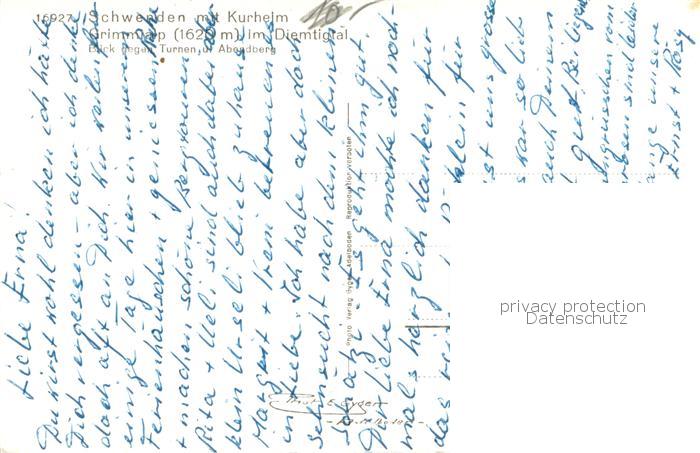 15927 Schwenden mit Kurheim
Grimmialp (1620 m) im Diemtigtal
Blick gegen Turnen u. Abendberg
10.-
Liebe Erna!
Du wirst wohl denken ich hätte
Dich vergessen – aber ich denke
doch oft an Dich. Wir verbringen
einige Tage hier in unserem
Ferienhäuschen + geniessen
+ machen schöne Bergtouren
Rita + Ueli sind auch dabei
klein Urseli blieb zuhause
Margrit + Irene betreuen es
in Liebe. Ich habe aber doch
Sehnsucht nach dem kleinen
Schatzi. Es geht ihm gut.
Dir liebe Erna möchte ich noch-
mals herzlich danken für
das
klein für
ist uns grosse
war so lieb
auch Deinem
gut. Beiliegend
vom
sind leider
unsere
Ernst + Rösy
Photo Verlag Gyger Adelboden Reproduktion verboten
Phot. E. Gyger
Adelboden
privacy protection
Datenschutz